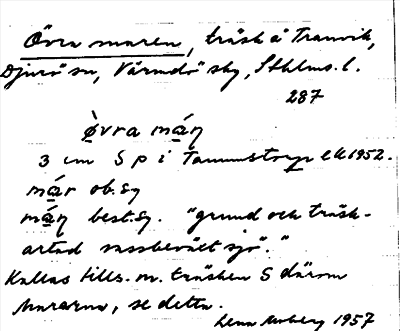 Övra maren, träsk å Tranvik,
Djurö sn, Värmdö skg, Sthlms. l.
287
òvra mán
3 cm S p i Tammstorp ek 1952.
már ob. sg
mán best. sg. "grund och träsk-
artad vassbevält sjö."
Kallas tills. m. träsken S därom
Mararna, se detta.
1957